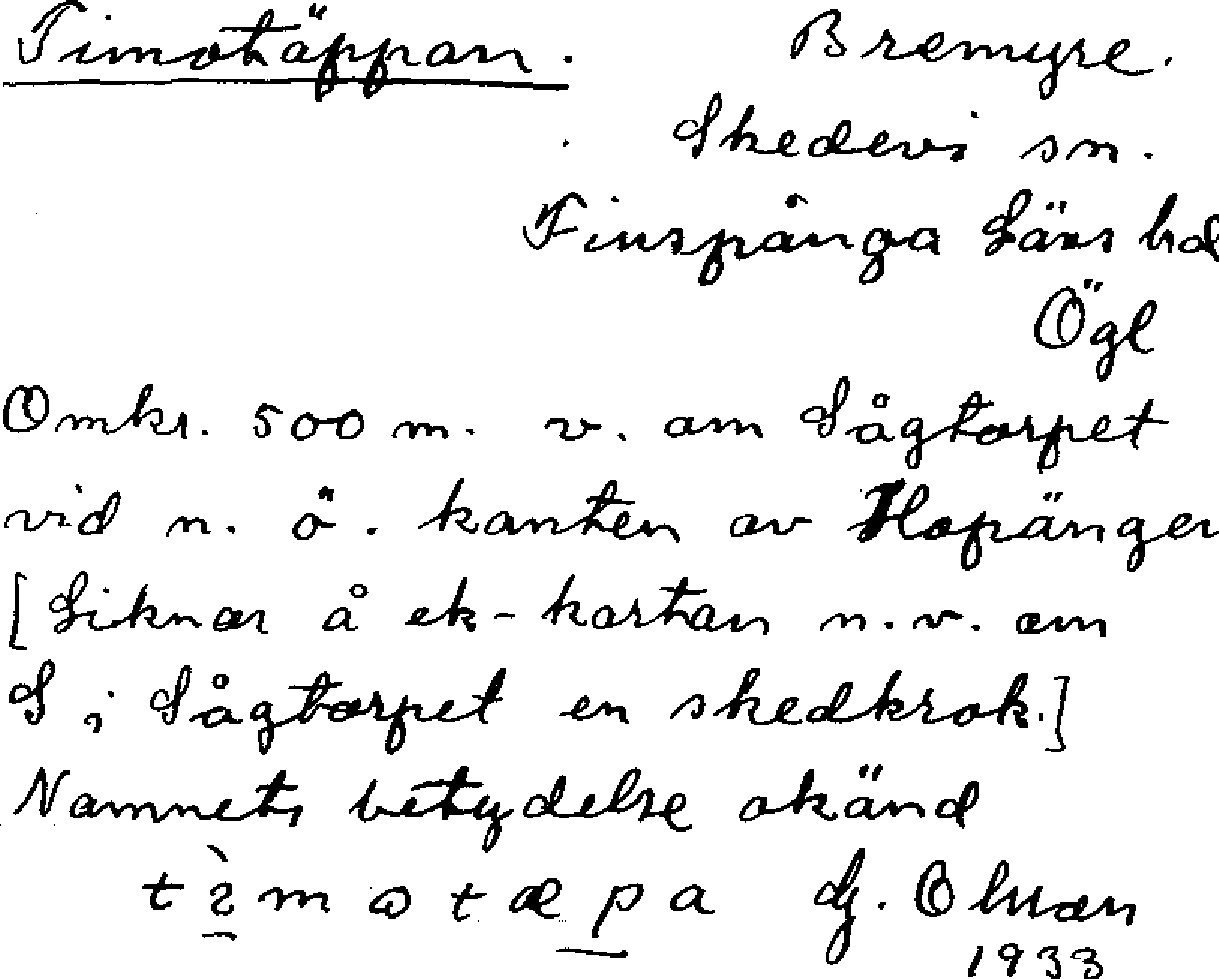 Timotäppan. Bremyre.
Skedevi sn.
Finspånga Läns hd
Ögl
Omkr. 500 m. v. om Sågtorpet
vid n. ö. kanten av Hopänger
[Liknar å ek-kartan n.v. om
S i Sågtorpet en skedkrok.]
Namnets betydelse okänd
1933